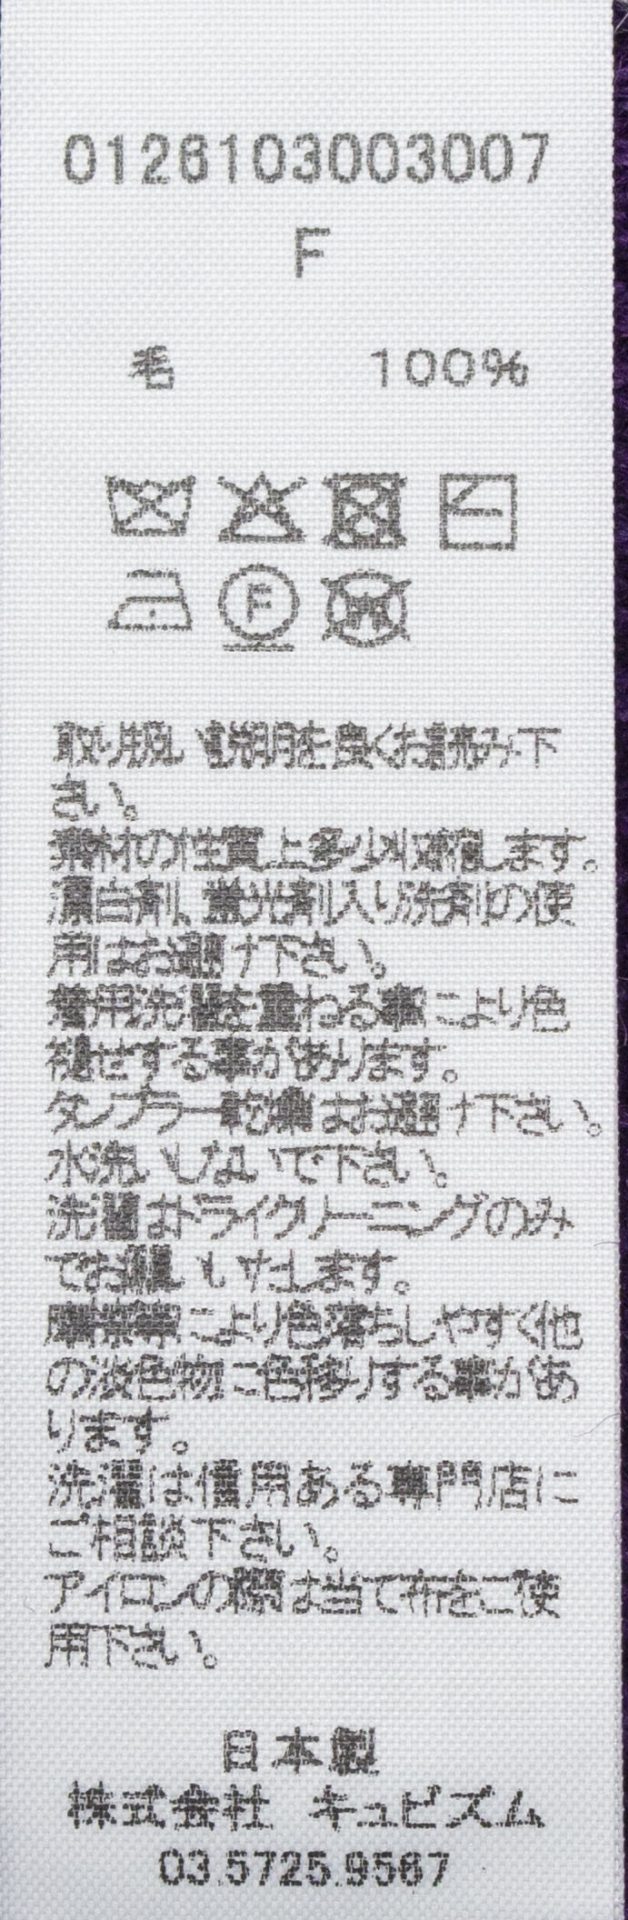 0126103003007
F
毛 100%
F
W
取り扱い説明を良くお読み下
さい。
素材の性質上多少収縮します。
漂白剤、蛍光剤入り洗剤の使
用はお避け下さい。
着用洗濯を重ねる事により色
褪せする事があります。
タンブラー乾燥はお避け下さい。
水洗いしないで下さい。
洗濯はドライクリーニングのみ
でお願いいたします。
摩擦等により色落ちしやすく他
の淡色物に色移りする事があ
ります。
洗濯は信用ある専門店に
ご相談下さい。
アイロンの際は当て布をご使
用下さい。
日本製
株式会社 キュビズム
03.5725.9567